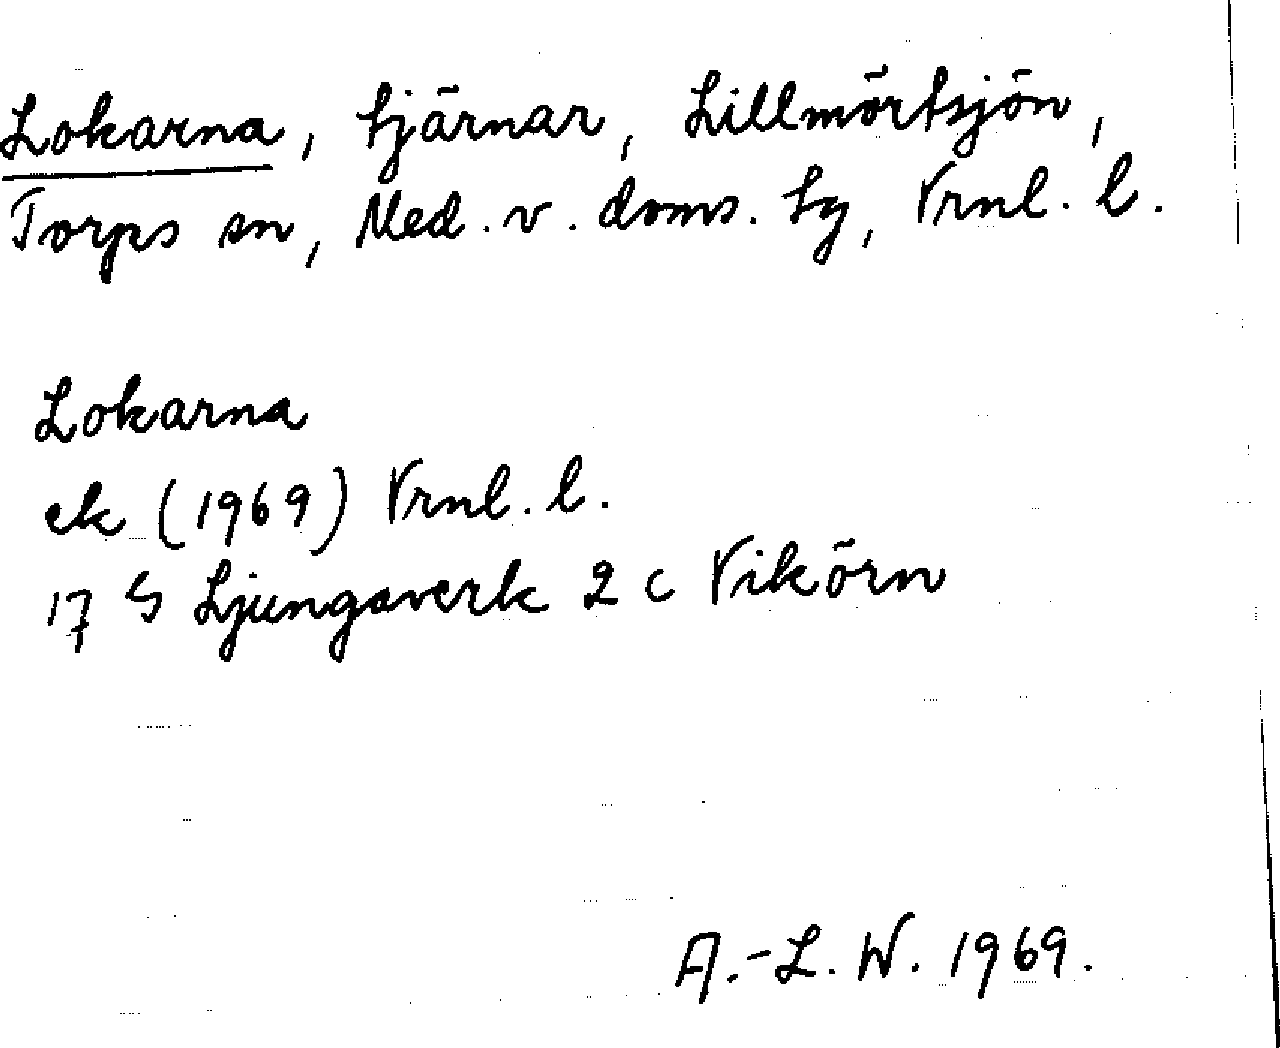 Lokarna, tjärnar, Lillmörtsjön,
Torps sn, Med. v. doms. tg, Vrnl. l.
Lokarna
ek (1969) Vrnl. l.
17 G Ljungaverk 2 c Vikörn
A.-L. W. 1969.